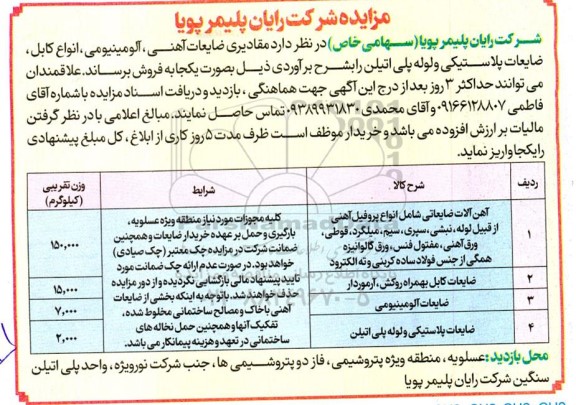 مزایده شرکت رایان پلیمر پویا
شرکت رایان پلیمر پویا (سهامی خاص) در نظر دارد مقادیری ضایعات آهنی، آلومینیومی، انواع کابل،
ضایعات پلاستیکی و لوله پلی اتیلن را بشرح برآوردی ذیل بصورت یکجا به فروش برساند. علاقمندان
می توانند حداکثر ۳ روز بعد از درج این آگهی جهت هماهنگی، بازدید و دریافت اسناد مزایده با شماره آقای
فاطمی ۰۹۱۶۶۱۲۸۸۰۷ و آقای محمدی ۰۹۳۸۹۹۳۱۸۳۰ تماس حاصل نمایند. مبالغ اعلامی با در نظر گرفتن
مالیات بر ارزش افزوده می باشد و خریدار موظف است ظرف مدت ۵ روز کاری از ابلاغ، کل مبلغ پیشنهادی
را یکجا واریز نماید.
ردیف شرح کالا شرایط وزن تقریبی (کیلوگرم)
۱ آهن آلات ضایعاتی شامل انواع پروفیل آهنی
از قبیل لوله، نبشی، سپری، سیم، میلگرد، قوطی،
ورق آهنی، مفتول فنس، ورق گالوانیزه
همگی از جنس فولاد ساده کربنی و ته الکترود
۱۵۰,۰۰۰
۲ ضایعات کابل بهمراه روکش، آرموردار ۱۵,۰۰۰
۳ ضایعات آلومینیومی ۷,۰۰۰
۴ ضایعات پلاستیکی و لوله پلی اتیلن ۲,۰۰۰
کلیه مجوزات مورد نیاز منطقه ویژه عسلویه،
بارگیری و حمل بر عهده خریدار ضایعات و همچنین
ضمانت شرکت در مزایده چک معتبر (چک صیادی)
خواهد بود. در صورت عدم ارائه چک ضمانت مورد
تایید پیشنهاد مالی بازگشایی نگردیده و از دور مزایده
حذف خواهند شد. باتوجه به اینکه بخشی از ضایعات
آهنی با خاک و مصالح ساختمانی مخلوط شده،
تفکیک آنها و همچنین حمل نخاله های
ساختمانی در تعهد و هزینه پیمانکار می باشد.
محل بازدید: عسلویه، منطقه ویژه پتروشیمی، فاز دو پتروشیمی ها، جنب شرکت نورویژه، واحد پلی اتیلن
سنگین شرکت رایان پلیمر پویا